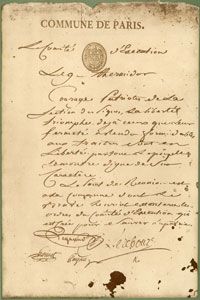 COMMUNE DE PARIS.
Le Comité d'Exécution
Le 9 thermidor
Courage Patriotes de la
Section des Piques, la liberté
triomphe, déjà ceux que leur
fermeté a rendu formidables
aux traîtres sont en
liberté, partout le peuple se
montre digne de son
Caractère
Le point de Réunion est à
la Commune dont le
exécutera les
ordres du Comité d'Exécution qui
est créé pour sauver la patrie
Legrand Lerebours
Payan